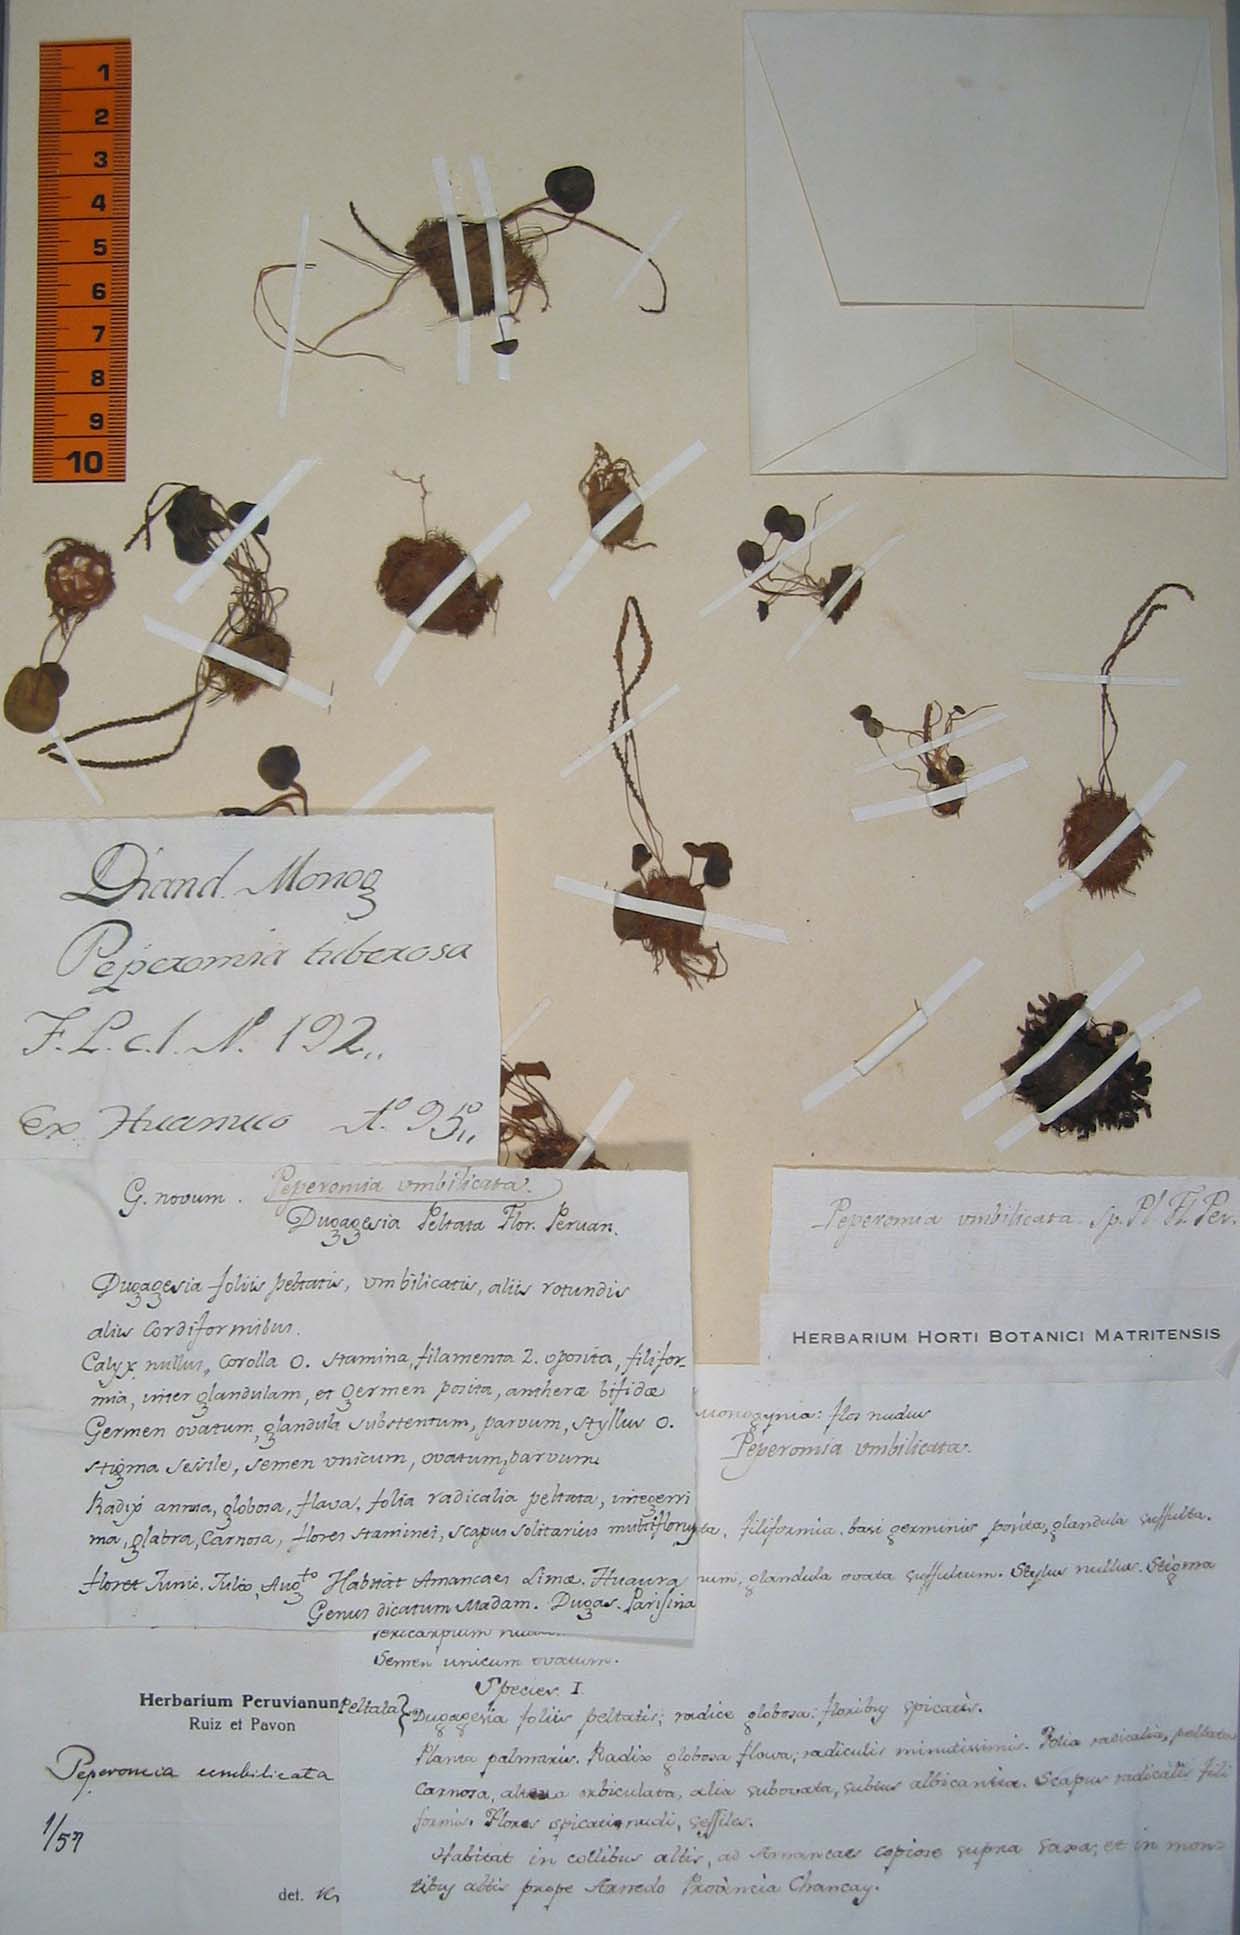 1
2
3
4
5
6
7
8
9
10
Diand. Monog
Peperomia tuberosa
F. L. c. 1. N. 192,,
Ex Huanuco Ao. 95,,
G. novum. Peperomia vmbilicata.
Dugagesia Peltata Flor. Peruan.
Dugagesia foliis peltatis, vmbilicatis, aliis rotundis
aliis Cordiformibus.
Calyx nullus, Corolla 0. stamina, filamenta 2. oposita, filifor-
mia, inter glandulam, et germen posita, antheræ bifidæ
Germen ovatum, glandula substentum, parvum, styllus 0.
stigma sessile, semen vnicum, ovatum, parvum
Radix annua, globosa, flava, folia radicalia peltata, integerri
ma, glabra, Carnosa, flores staminei, scapus solitarius multiflorus
floret Junio. Julio, Augto Habitat Amancaes Limæ. Huaura
Genus dicatum Madam. Dugas. Parisina
Peperomia vmbilicata. Sp. Pl. Fl. Per.
HERBARIUM HORTI BOTANICI MATRITENSIS
Monogynia: flos nudus
Peperomia vmbilicata.
ta, filiformia, basi germinis posita, glandula suffulta.
rum, glandula ovata suffultum. Stylus nullus. Stigma
Pericarpium
Semen unicum ovatum.
Species I.
Peltata } Dugagesia foliis peltatis; radice globosa: floribus spicatis.
Planta palmaris. Radix globosa flava; radiculis minutissimis. Folia radicalia, peltata
Carnosa, orbiculata, alia subovata, subtus albicantia. Scapus radicalis fili
formis. Flores spicati nudi, sessiles.
Habitat in collibus altis, ad Amancaes copiose supra saxa, et in mon-
tibus altis prope Arnedo Provincia Chancay.
Herbarium Peruvianum
Ruiz et Pavon
Peperomia umbilicata
1/57
det.